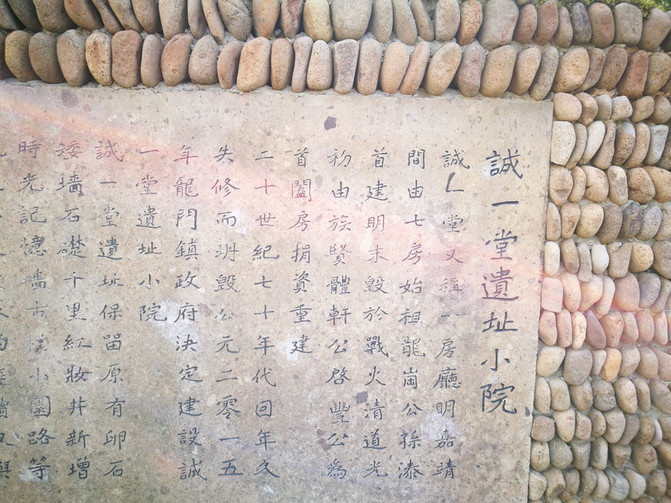 誠一堂遺址小院
誠一堂又稱一房廳明嘉靖
間由七房始祖龍崗公孫溱
首建明末毀於戰火清道光
初由族賢體軒公啓豐公為
首闔房捐資重建
二十世紀七十年代囙年久
失修而坍毀公元二零一五
年龍門鎮政府決定建設誠
一堂遺址小院
誠一堂遺址保畱原有卵石
矮墻石礎千里紅妝井新增
時光記憶墻小園路等